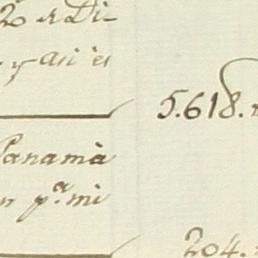 2 de Di-
y asi es
5.618.
Panamà
pª. mi
204.